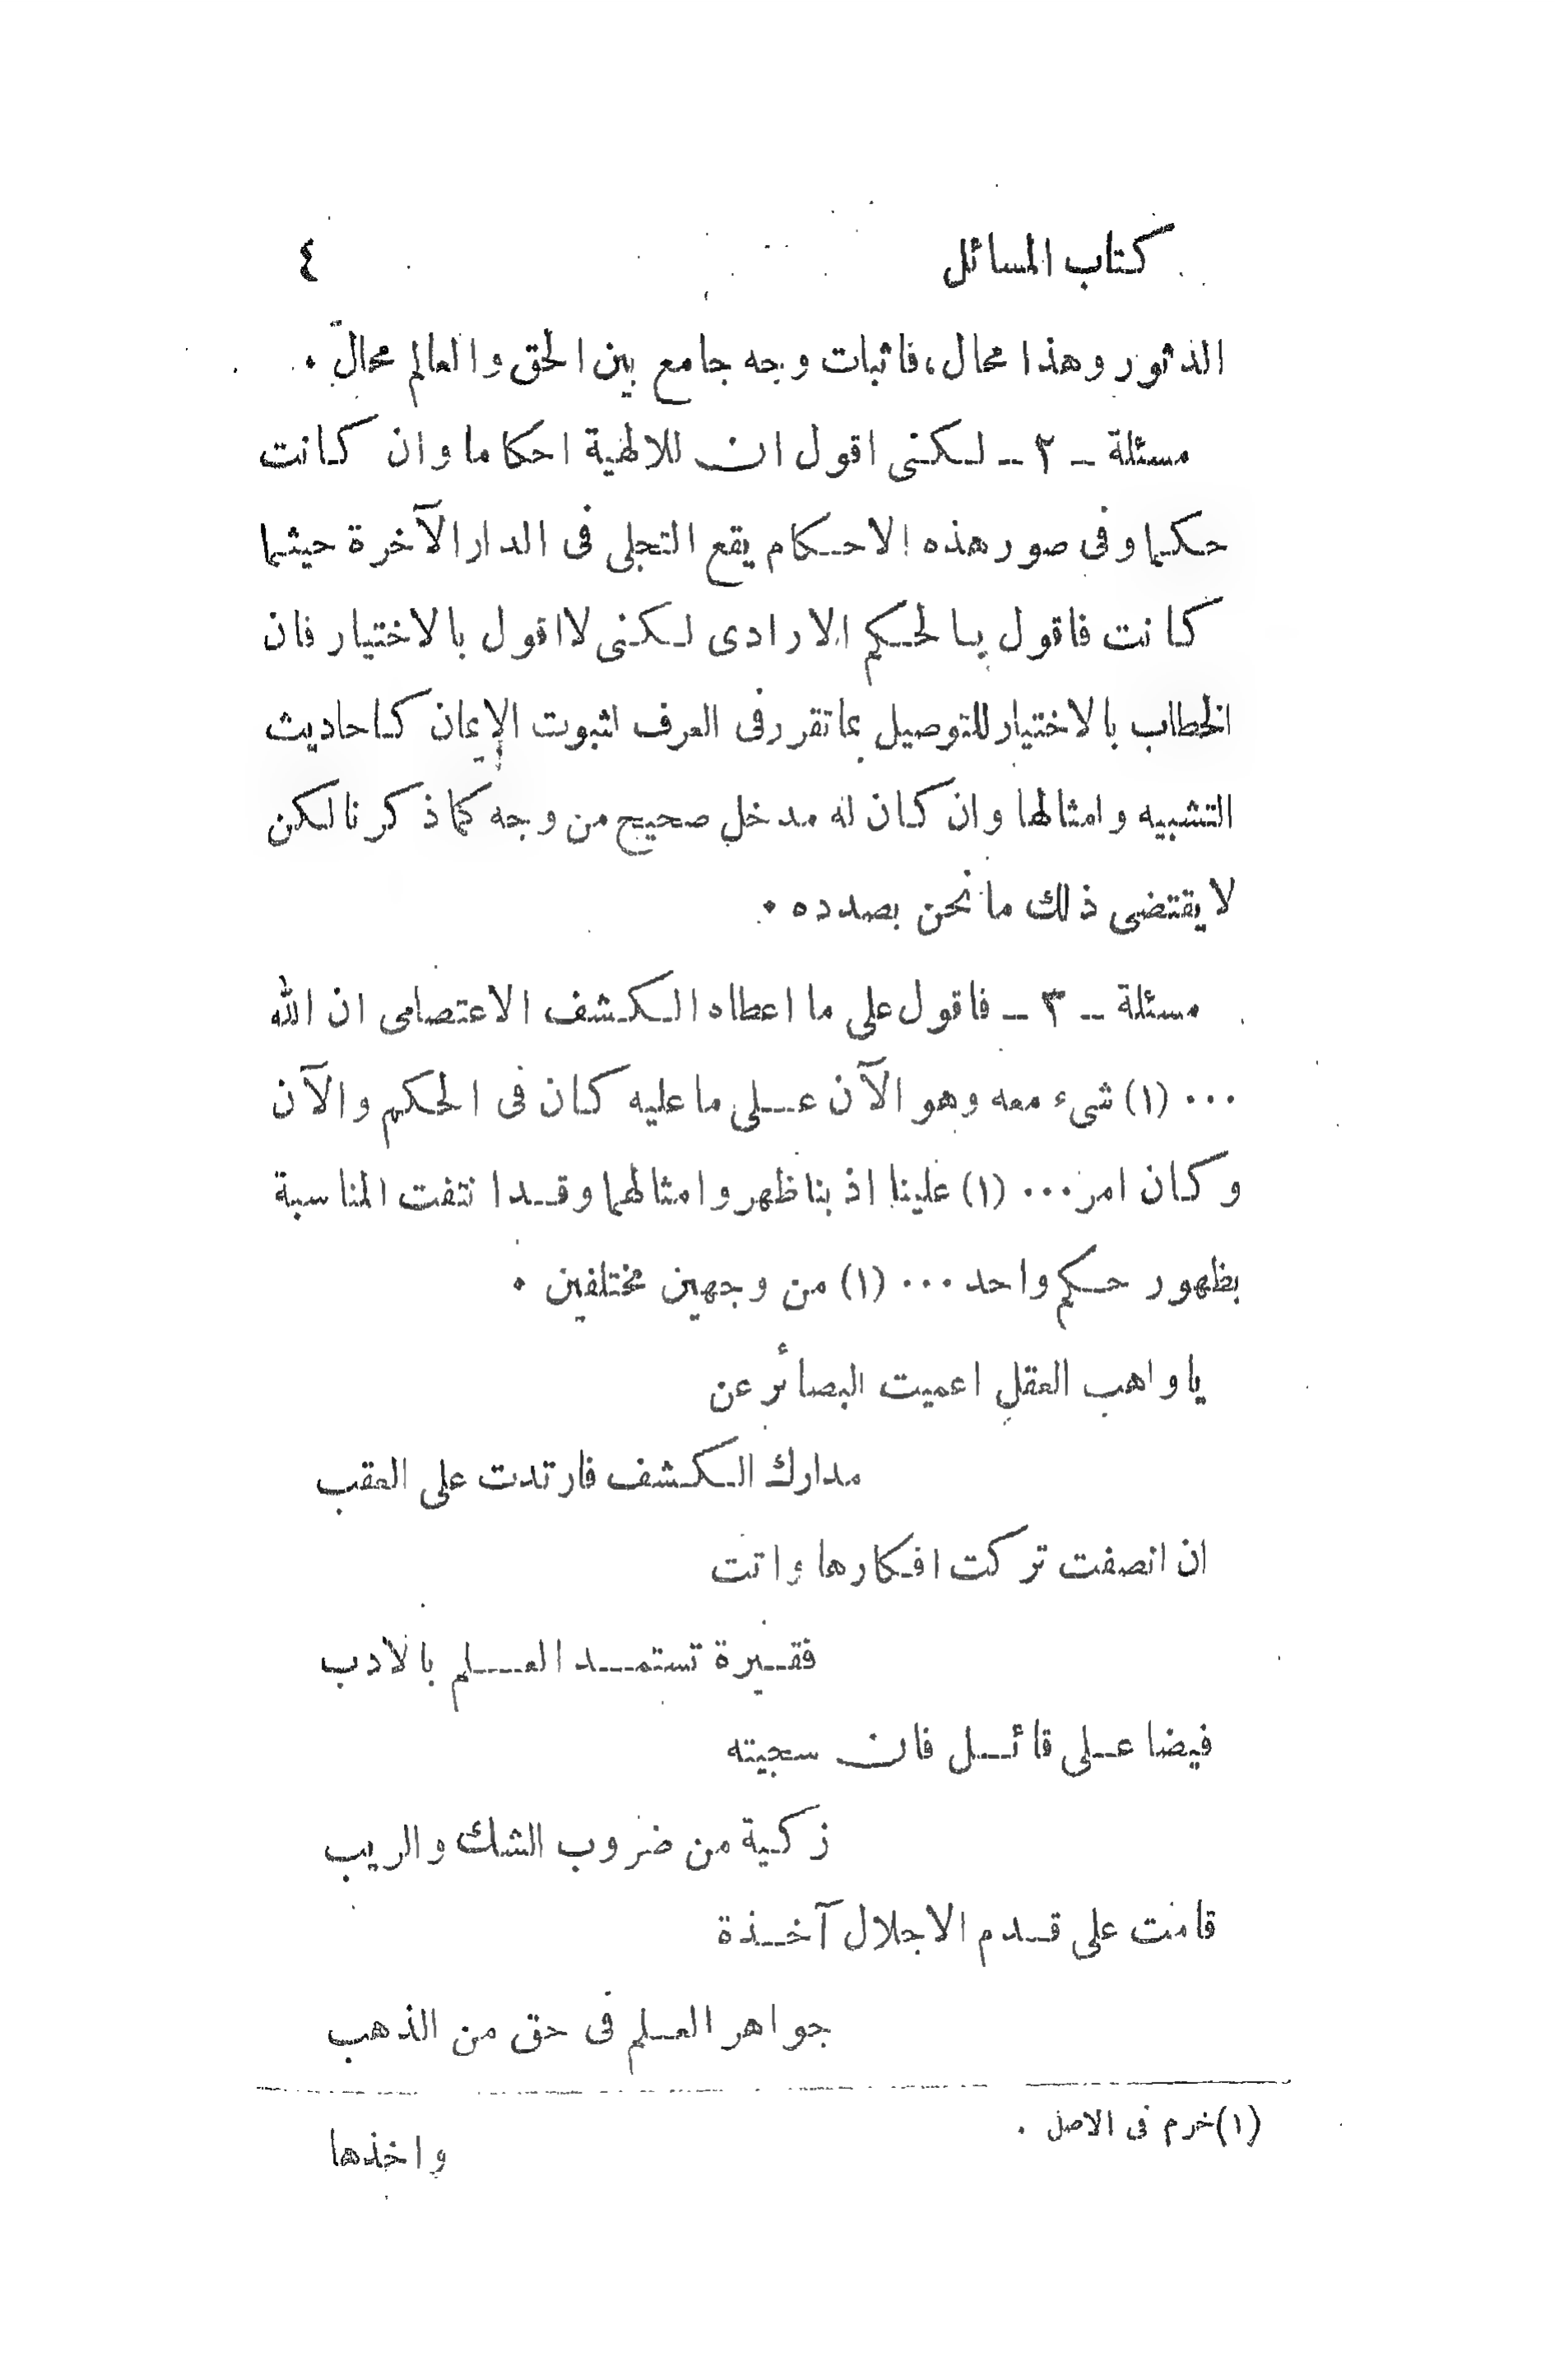 كتاب المسائل ٤
الدثور وهذا محال، فاثبات وجه جامع بين الحق والعالم محال .
مسئلة – ٢ – لكنى اقول ان للالهية احكاما وان كانت
حكما وفى صور هذه الاحكام يقع التجلى فى الدار الآخرة حيثما
كانت فاقول بالحكم الارادى لكنى لا اقول بالاختيار فان
الخطاب بالاختيار للتوصيل بما تقرر فى العرف لثبوت الإيمان كاحاديث
التشبيه وامثالها وان كان له مدخل صحيح من وجه كما ذكرنا لكن
لا يقتضى ذلك ما نحن بصدده .
مسئلة – ٣ – فاقول على ما اعطاه الكشف الاعتصامى ان الله
... (١) شىء معه وهو الآن على ما عليه كان فى الحكم والآن
وكان امر ... (١) علينا اذ بنا ظهر وامثالهما وقد انتفت المناسبة
بظهور حكم واحد ... (١) من وجهين مختلفين .
يا واهب العقل اعميت البصائر عن
مدارك الكشف فارتدت على العقب
ان انصفت تركت افكارها واتت
فقيرة تستمد العلم بالادب
فيضا على قائل فان سجيته
زكية من ضروب الشك والريب
قامت على قدم الاجلال آخذة
جواهر العلم فى حق من الذهب
(١) خرم فى الاصل .
واخذها